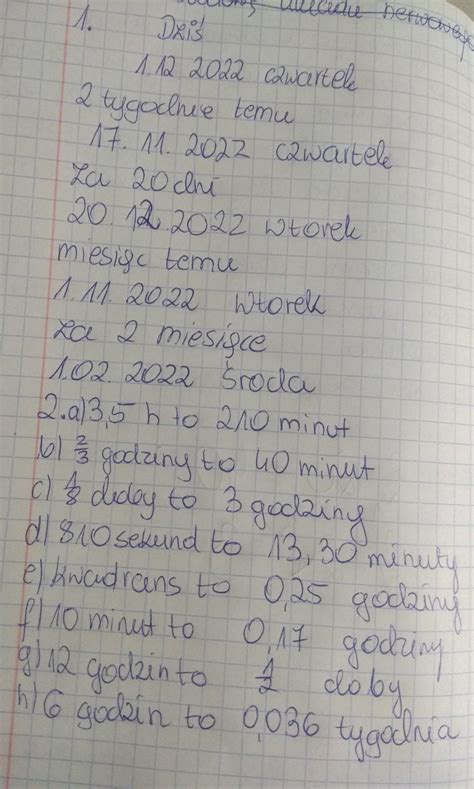 układu nerwowego
1. Dziś
1.12 2022 czwartek
2 tygodnie temu
17.11.2022 czwartek
za 20 dni
20.12.2022 wtorek
miesiąc temu
1.11.2022 wtorek
za 2 miesiące
1.02.2022 środa
2.a)3,5 h to 210 minut
b) 2/3 godziny to 40 minut
c) 1/8 doby to 3 godziny
d) 810 sekund to 13,30 minuty
e) kwadrans to 0,25 godziny
f) 10 minut to 0,17 godziny
g) 12 godzin to 1/2 doby
h) 6 godzin to 0,036 tygodnia